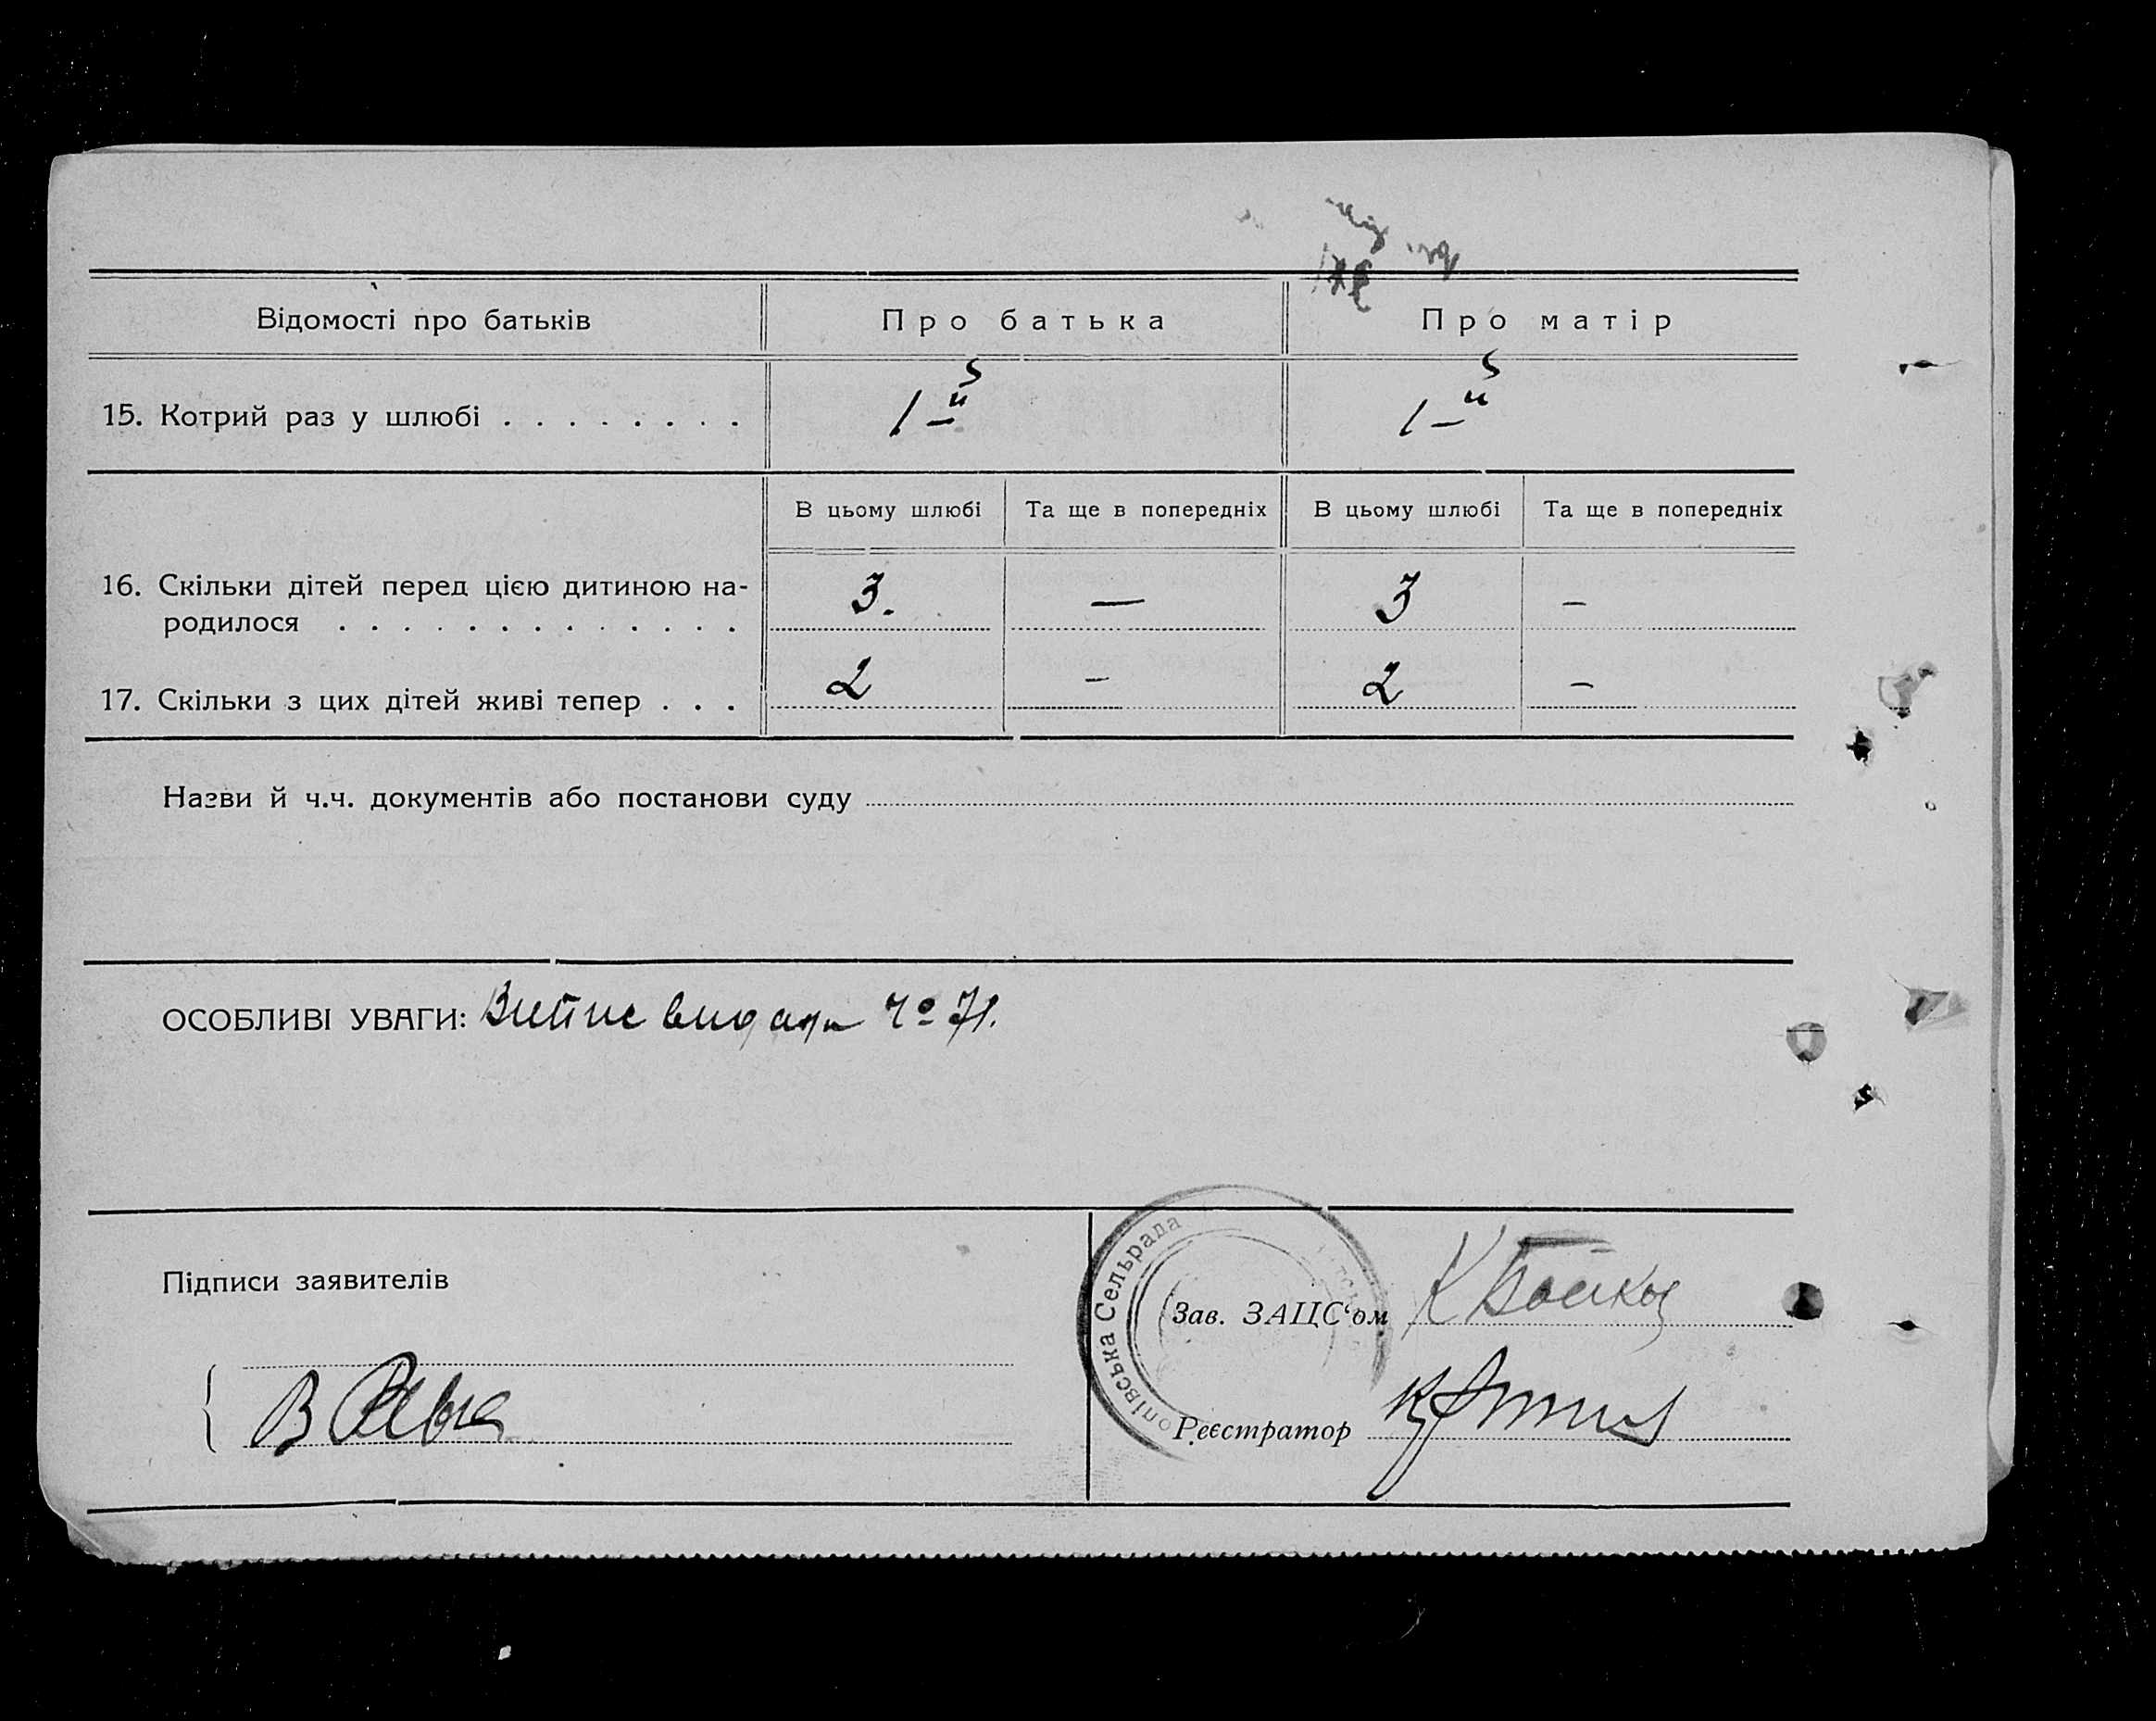 Відомості про батьків Про батька Про матір
15. Котрий раз у шлюбі . . . . . . . . 1-й 1-й
В цьому шлюбі Та ще в попередніх В цьому шлюбі Та ще в попередніх
16. Скільки дітей перед цією дитиною на- 3. — 3 –
родилося . . . . . . . . . . . . . .
17. Скільки з цих дітей живі тепер . . . 2 – 2 –
Назви й ч.ч. документів або постанови суду
ОСОБЛИВІ УВАГИ: Витис 71.
Підписи заявителів
опівська Сельрада
Зав. ЗАЦС‘ом К Бойко
В
Реєстратор